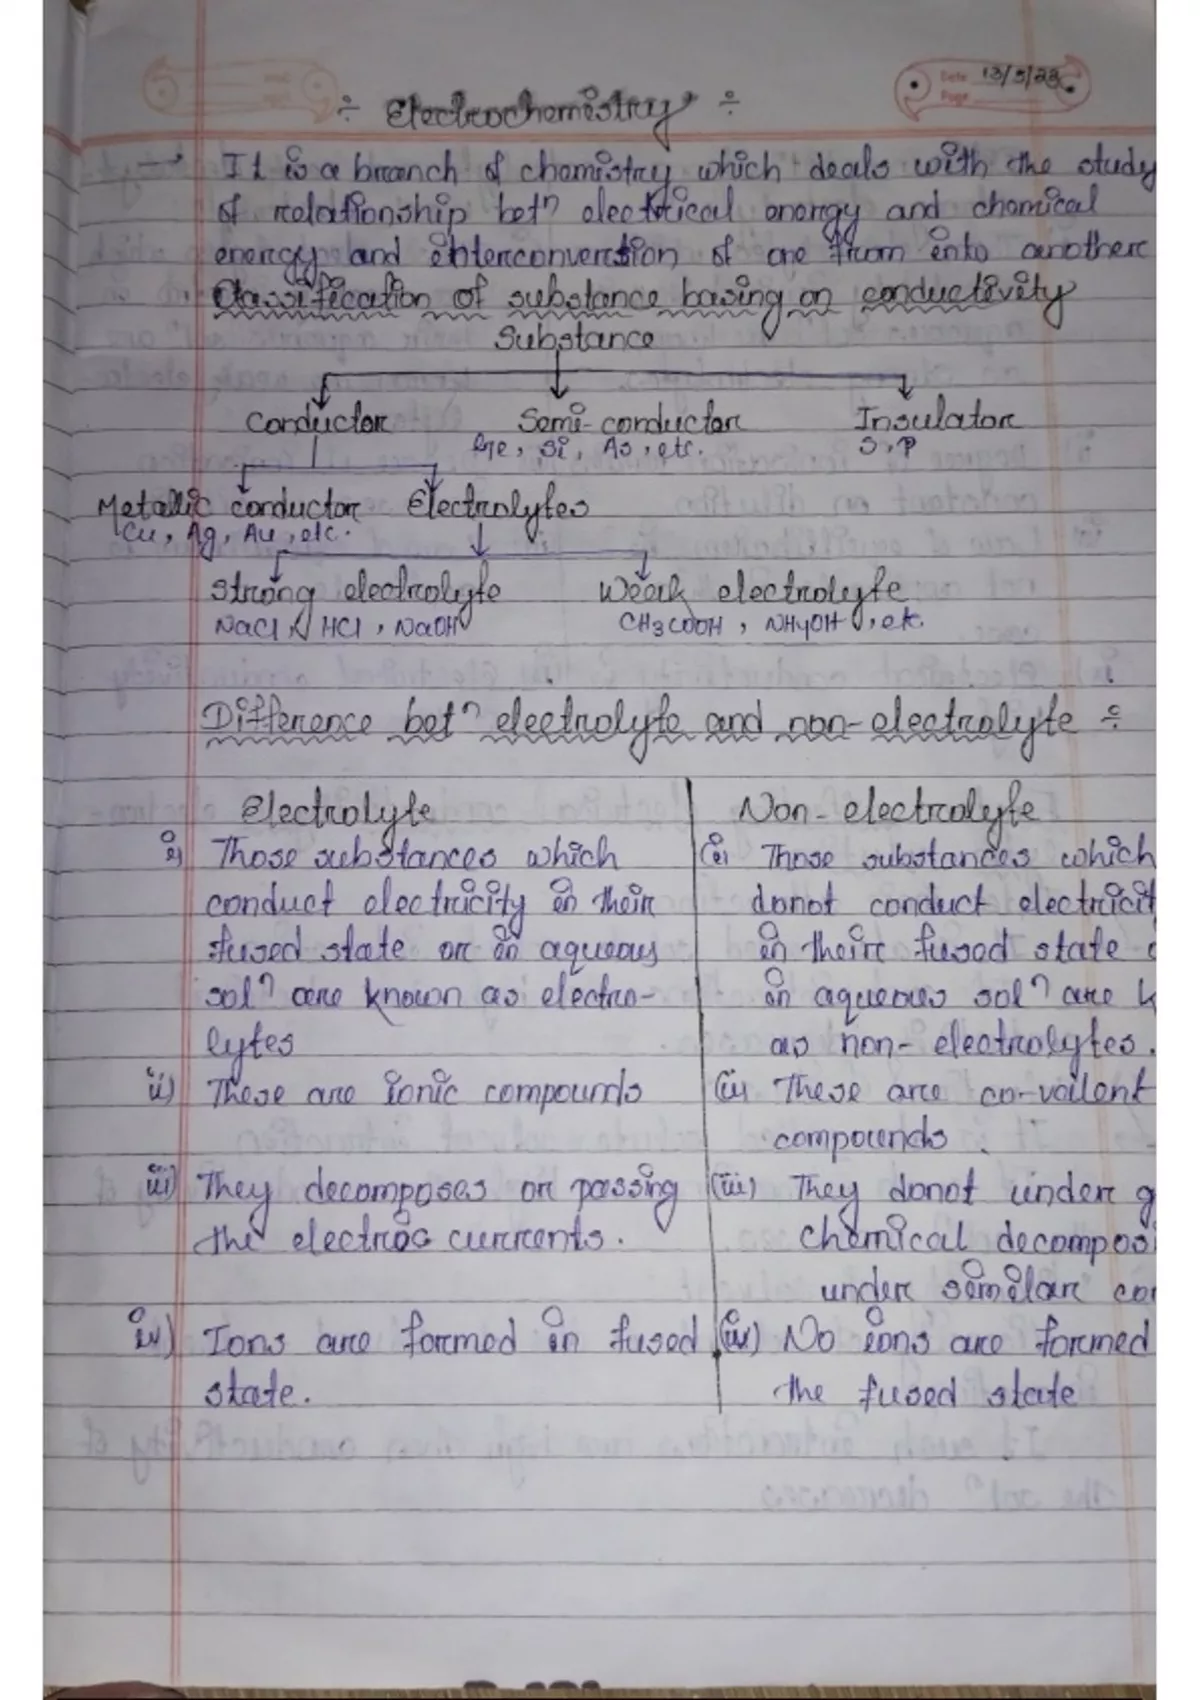 Date 13/5/23
Page
÷ Electrochemistry ÷
→ It is a branch of chemistry which deals with the study
of relationship betⁿ electrical energy and chemical
energy and interconversion of one from into another
Classification of substance basing on conductivity
Substance
Conductor Semi-conductor Insulator
Ge, Si, As, etc. S, P
Metallic conductor Electrolytes
Cu, Ag, Au, etc.
Strong electrolyte Weak electrolyte
NaCl, HCl, NaOH CH3COOH, NH4OH, etc.
Difference betⁿ electrolyte and non-electrolyte ÷
Electrolyte
i) Those substances which
conduct electricity in their
fused state or in aqueous
solⁿ are known as electro-
lytes
ii) These are ionic compounds
iii) They decomposes on passing
the electric currents.
iv) Ions are formed in fused
state.
Non-electrolyte
(i) Those substances which
donot conduct electricit
in their fused state
in aqueous solⁿ are k
as non-electrolytes.
(ii) These are co-valent
compounds.
(iii) They donot under g
chemical decompos
under similar co
(iv) No ions are formed
the fused state